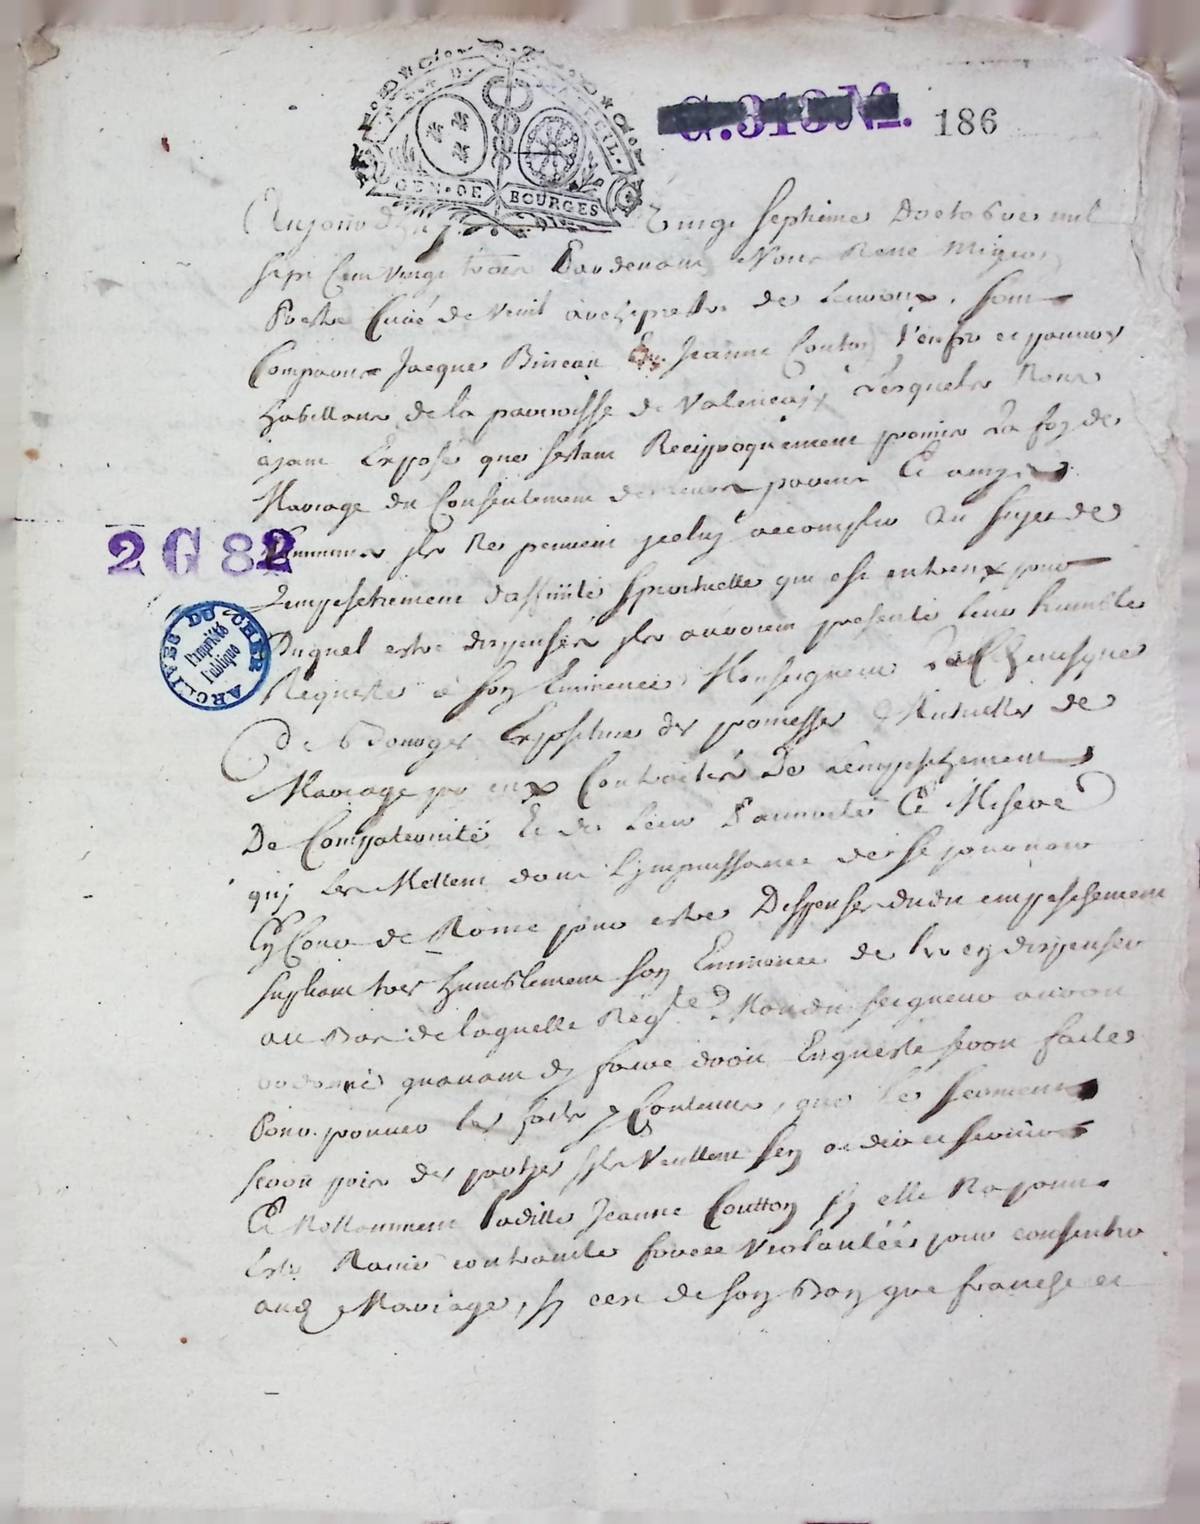 GEN·DE BOURGES
G.313 No. 186
Aujourdhuy vingt septieme Doctobre mil
sept Cent vingt trois Pardevant Nous René Migno
Prestre Curé de Veuil archiprestre de Levroux, sont
Comparus Jacque Bineau Et Jeanne Couton veufve et pauvres
habittans de la parroisse de Valencay, Lesquels Nous
ayant Exposé que sestant Reciproquement promis La foy de
Mariage du Consentement de leurs parens Et amys
Communs ils Ne peuvent yceluy accomplir au sujet de
2 G 82
Lempeschement daffinité spirituelle qui est entreux pour
Duquel estre dispensés ils auroient presenté leur humble
ARCHIVES DU CHER
Propriété Publique
Requeste a son Eminence Monseigneur LarChevesque
De Bourges Expositive des promesses Mutuelles de
Mariage par eux Contractés De Lempeschement
De Compaternité Et de Leur Pauvreté Et Misere
quy Les Mettent dans Lympuissance de se pourvoir
En Cour de Rome pour estre Dispensés dudit empeschement
supliant tres humblement son Eminence de les en dispenser
au Bas de laquelle Reqte Mondit seigneur auroit
ordonné quavant dy faire droit Enqueste seroit faite
Pour prouver les faits y Contenus, que le serment
seroit pris des parties sils Veullent sen aider et servir
Et Nottamment Laditte Jeanne Coutton sy elle Na point
Esté Ravie contrainte forcée violantée pour consentir
aud Mariage, sy cest de son Bon gre franche et